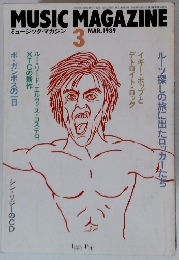 MUSIC MAGAZINE
ミュージック・マガジン
3
MAR.1989
ルーツ探しの旅に出たロッカーたち
イギー・ポップと
デトロイト・ロック
ルー・リード、エルヴィス・コステロ、
XTCの新作
ボ・ガンボスの一日
シンディーのCD
Iggy Pop